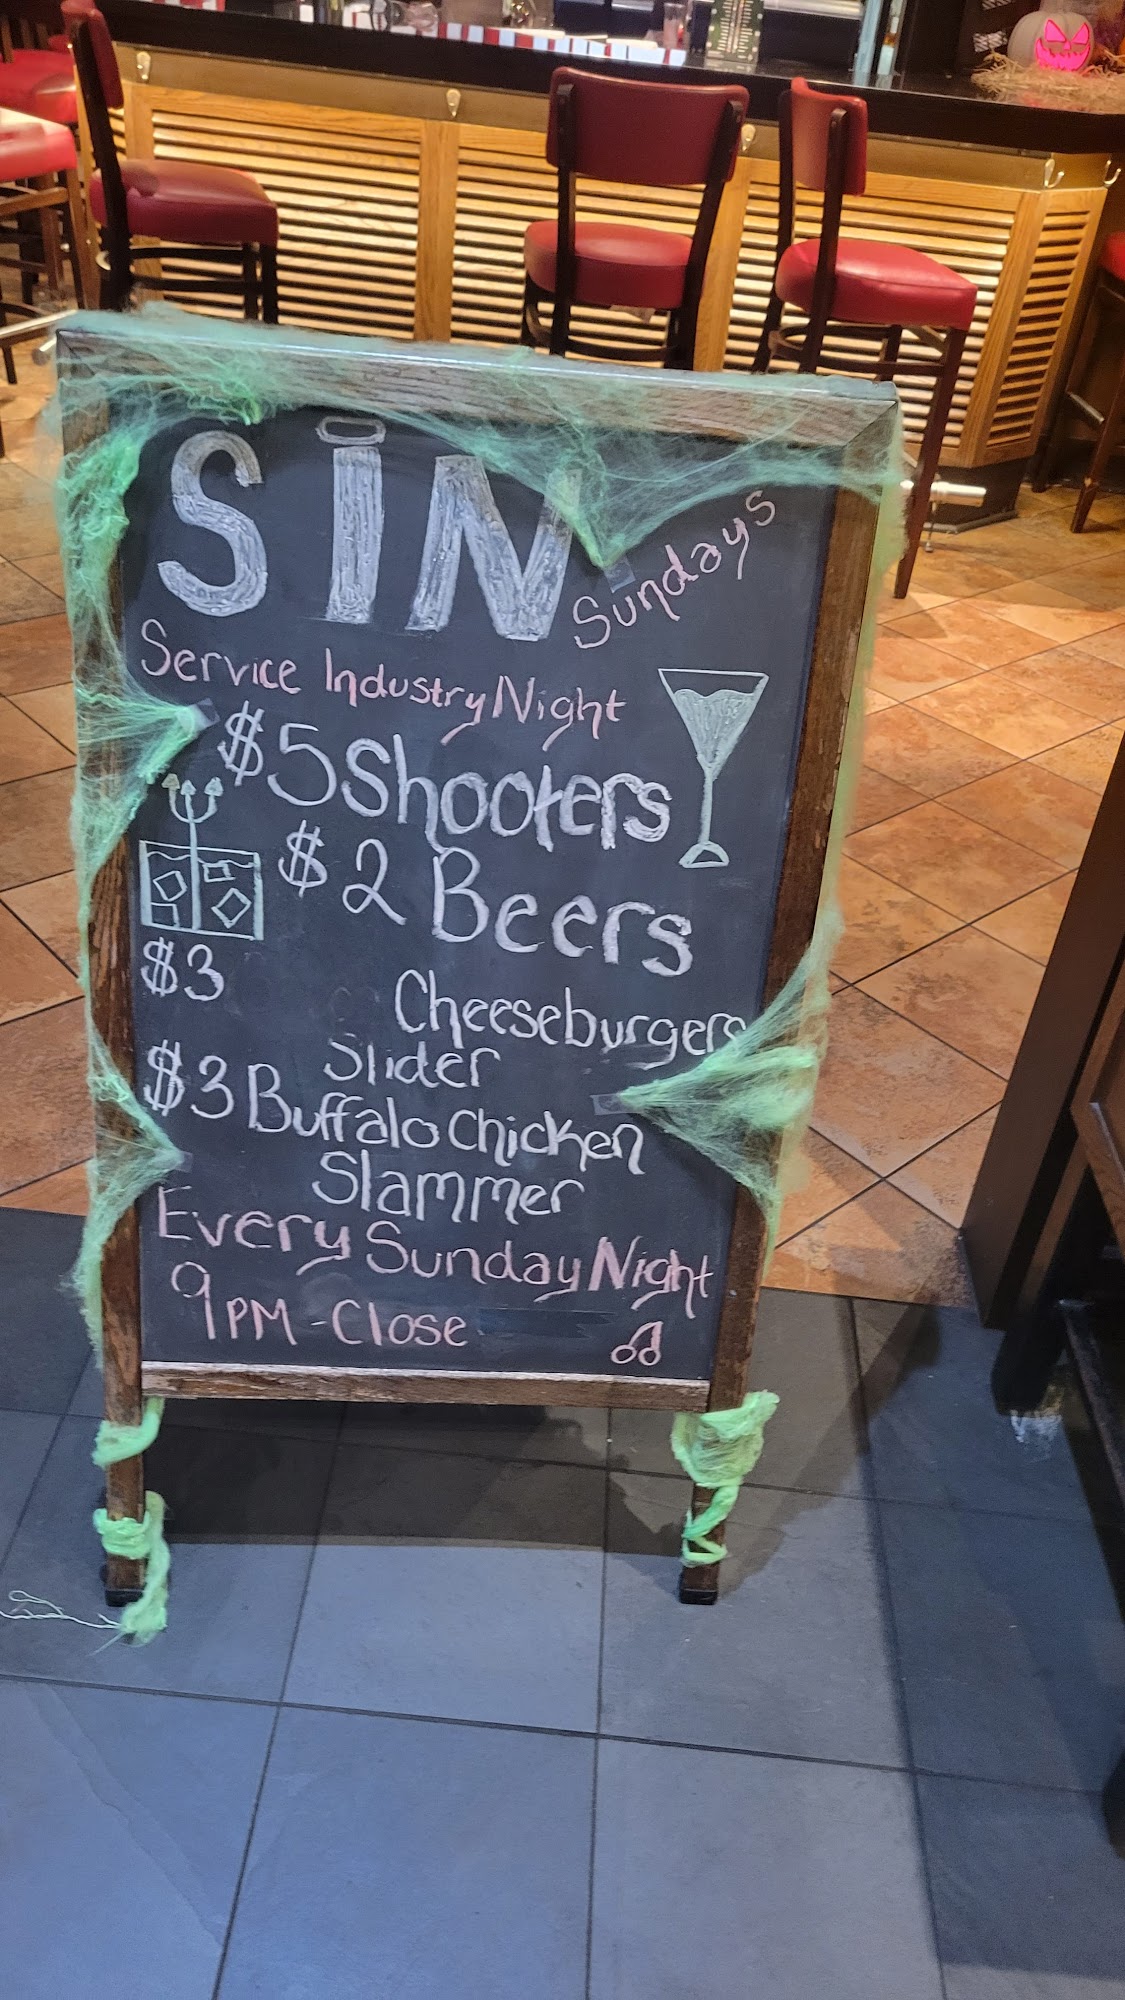 SIN
Sundays
Service Industry Night
$5 Shooters
$2 Beers
$3 Cheeseburgers
Slider
$3 Buffalo Chicken
Slammer
Every Sunday Night
9PM - Close